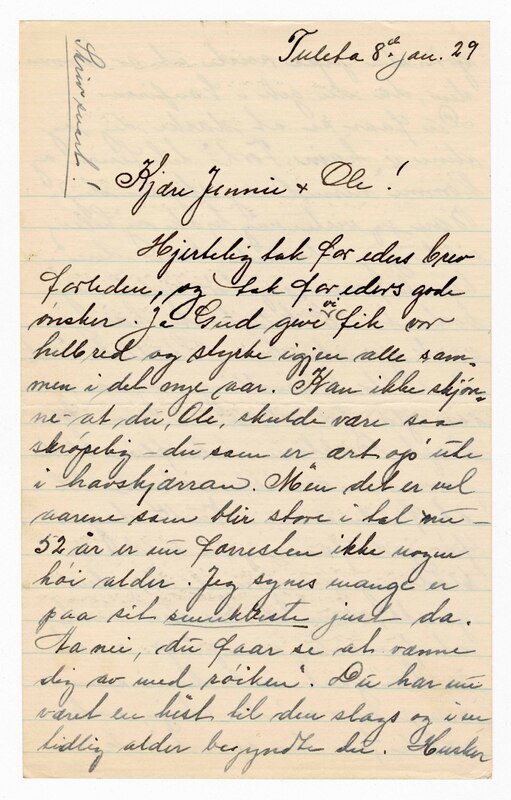 Skriv snart!
Tuleta 8de jan. 29
Kjære Jennie + Ole!
Hjertelig tak for eders brev
forleden, og tak for eders gode
ønsker. Ja Gud give vi fik vor
helbred og styrke igjen alle sam-
men i det nye aar. Kan ikke skjøn-
ne at du, Ole, skulde være saa
skrøpelig – du som er ært op' ute
i havskjærran. Men det er vel
aarene som blir store i tal nu –
52 år er nu forresten ikke nogen
høi alder. Jeg synes mange er
paa sit smukkeste just da.
Aa nei, du faar se at vænne
dig av med røiken". Du har nu
været en hest til den slags og i en
tidlig alder begyndte du. Husker